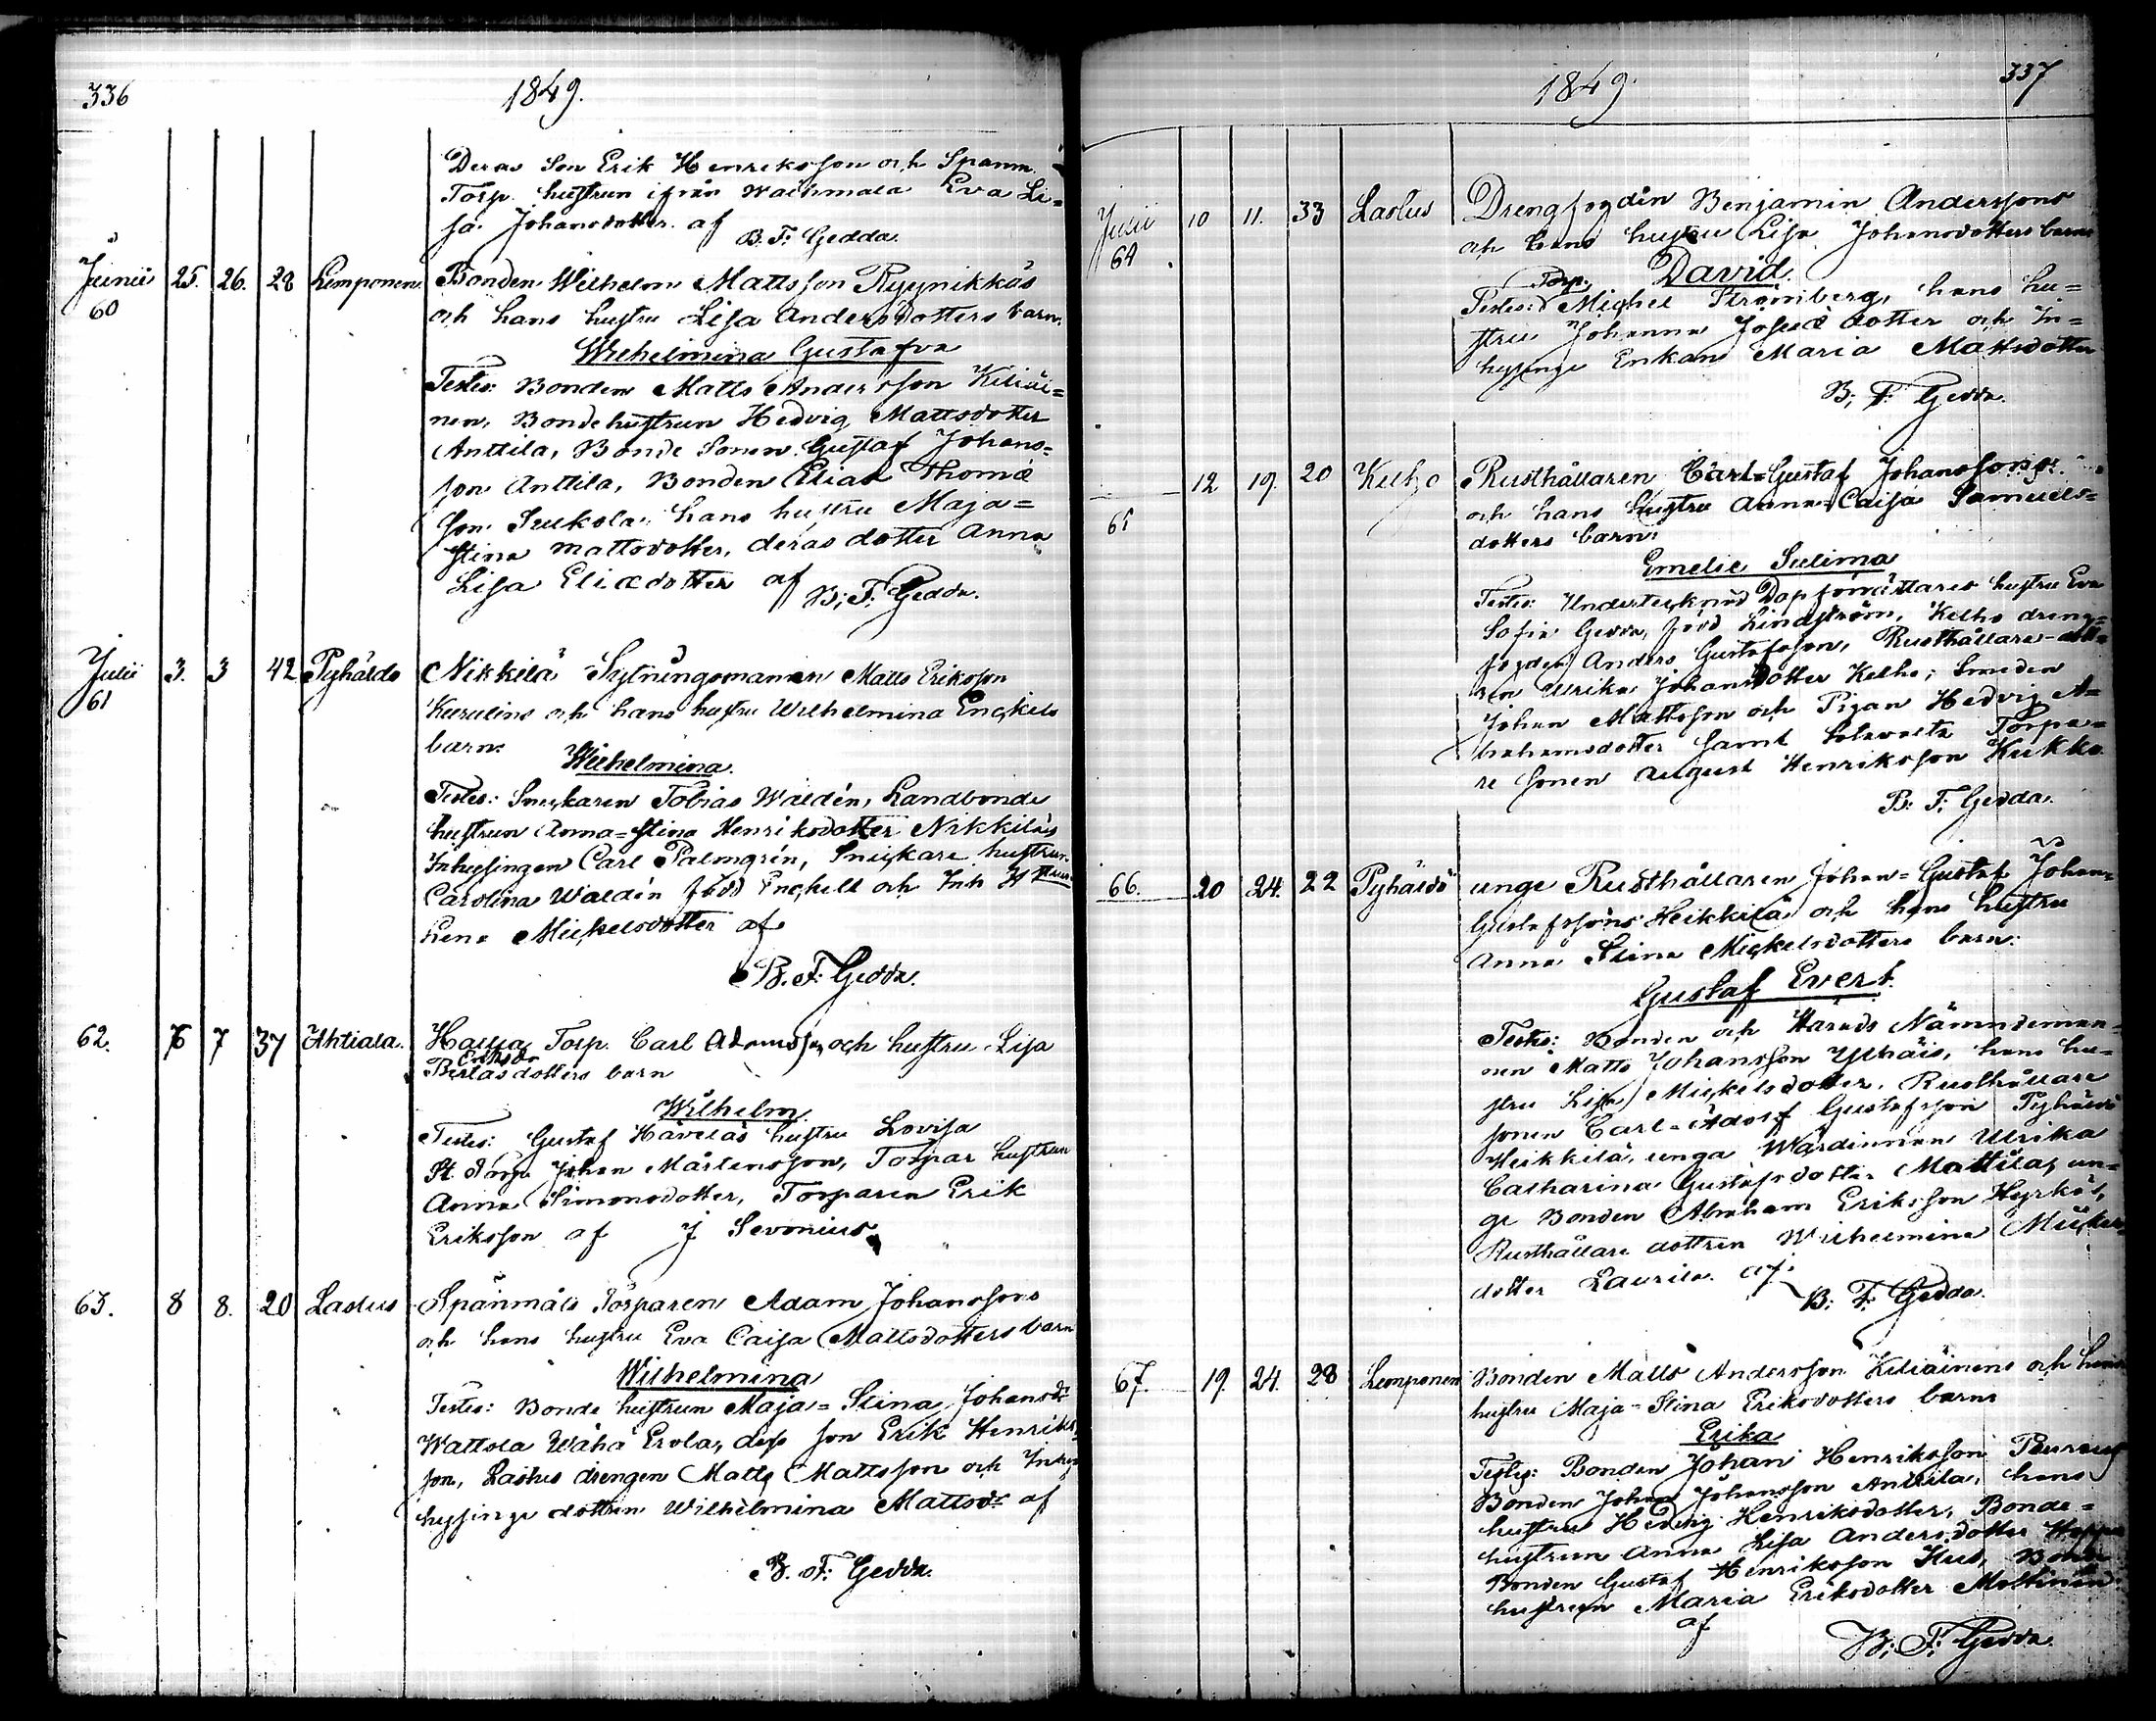 336
1849.
Deras Son Erik Henriksson och Spanm.
Torp. hustrun ifrån Wachmala Eva Li=
sa Johansdotter af
B. F. Gedda.
Junii 25. 26. 28 Lemponen. Bonden Wilhelm Mattsson Ryynikkäs
60 och hans hustru Lisa Andersdotters barn.
Wilhelmina Gustafva
Testes: Bonden Matts Andersson Kiliäi=
nen, Bondehustrun Hedvig Mattsdotter
Anttila, Bonde Sonen Gustaf Johans=
son Anttila, Bonden Elias Thomæ
son Sukola, hans hustru Maja=
Stina Mattsdotter, deras dotter Anna
Lisa Eliædotter af B. F. Gedda.
Julii 3. 3 42 Pyhäldo Nikkilä Sytningsmannen Matts Eriksson
61 och hans hustru Wilhelmina Enckels
barn:
Wilhelmina.
Testes: Snickaren Tobias Waldén, Landbonde
hustrun Anna=Stina Henriksdotter Nikkilä,
Inhysingen Carl Palmgrén, Snickare hustrun
Carolina Waldén född Enckell och Inh. Hustrun
Lena Mickelsdotter af
B. F. Gedda.
62. 6 7 37 Ahtiala. Torp. Carl Adamsson och hustru Lisa
Eriksdr
dotters barn
Wilhelm
Testes: Gustaf Häveläs hustru Lovisa
St. Torp. Johan Mårtensson, Torpar hustrun
Anna Simonsdotter, Torparen Erik
Eriksson af J Sevonius.
63. 8 8. 20 Lastus Spånmåls Torparen Adam Johanssons
och hans hustru Eva Caisa Mattsdotters barn
Wilhelmina
Testes: Bonde hustrun Maja=Stina Johansdr
Wattola Wähä Erola, dess son Erik Henriks=
son, Lastus drengen Matts Mattsson och Inhy
hysinge dottren Wilhelmina Mattsdr af
B. F. Gedda.
1849.
337
Julii 10 11. 33 Lastus Drengfogden Benjamin Anderssons
64 och hans hustru Lisa Johansdotters barn
David.
Torp.
Testes: Michel Strömberg, hans hu=
stru Johanna Josuædotter och In=
hysinge Enkan Maria Mattsdotter
B. F. Gedda.
12 19. 20 Kelho Rusthållaren Carl=Gustaf Johanssons
65 och hans hustru Anna Caisa Samuels=
dotters barn:
Emelie Selima
Testes: Undertecknad Dopförrättares hustru Eva
Sofia Gedda, född Lindström, Kelho dreng=
fogden Anders Gustafsson, Rusthållare=dott=
ren Ulrika Johansdotter Kelho, Smeden
Johan Mattsson och Pigan Hedvig A=
brahamsdotter samt Torpa=
re Sonen August Henriksson Kukko
B. F. Gedda.
66. 20 24. 22 Pyhäldö unge Rusthållaren Johan=Gustaf Johan=
Gustafssons Heikkilä och hans hustru
Anna Stina Mickelsdotters barn:
Gustaf Evert.
Testes: Bonden och Härads Nämndeman=
nen Matts Johansson Ylhäis, hans hu=
stru Lisa Mickelsdotter, Rusthållare
sonen Carl=Adolf Gustafsson Pyhäldö
Heikkilä, unga Wärdinnan Ulrika
Catharina Gustafsdotter Mattila, un=
ge Bonden Abraham Eriksson Hyrkäs,
Rusthållare dottren Wilhelmina Mickels
dotter Laurila. af.
B. F. Gedda.
67. 19. 24. 28 Lemponen Bonden Matts Andersson Kiliäinens och hans
hustru Maja=Stina Eriksdotters barn
Erika
Testes: Bonden Johan Henriksson
Bonden Johan Johansson Anttila, hans
hustru Hedvig Henriksdotter, Bonde=
hustrun Anna Lisa Andersdotter
Bonden Gustaf Henriksson Bonde
hustrun Maria Eriksdotter
af
B. F. Gedda.